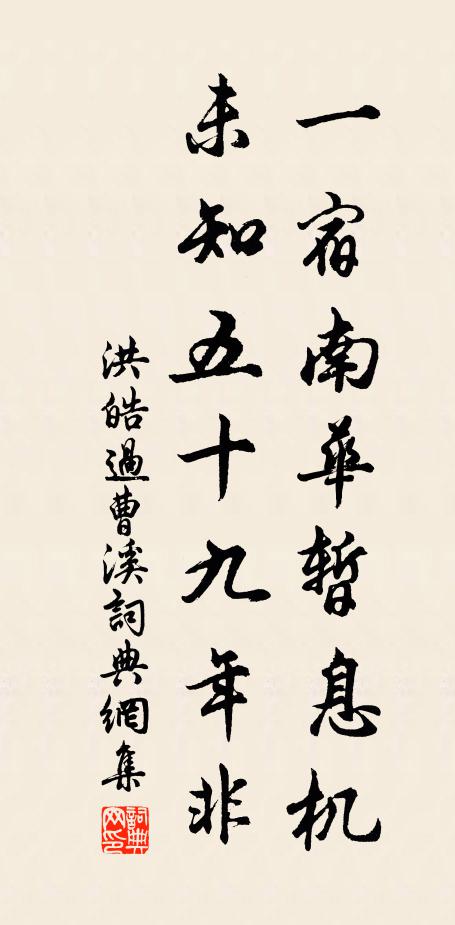 一宿南華暫息机
未知五十九年非
洪皓過曹溪詞典網集
詞典网印